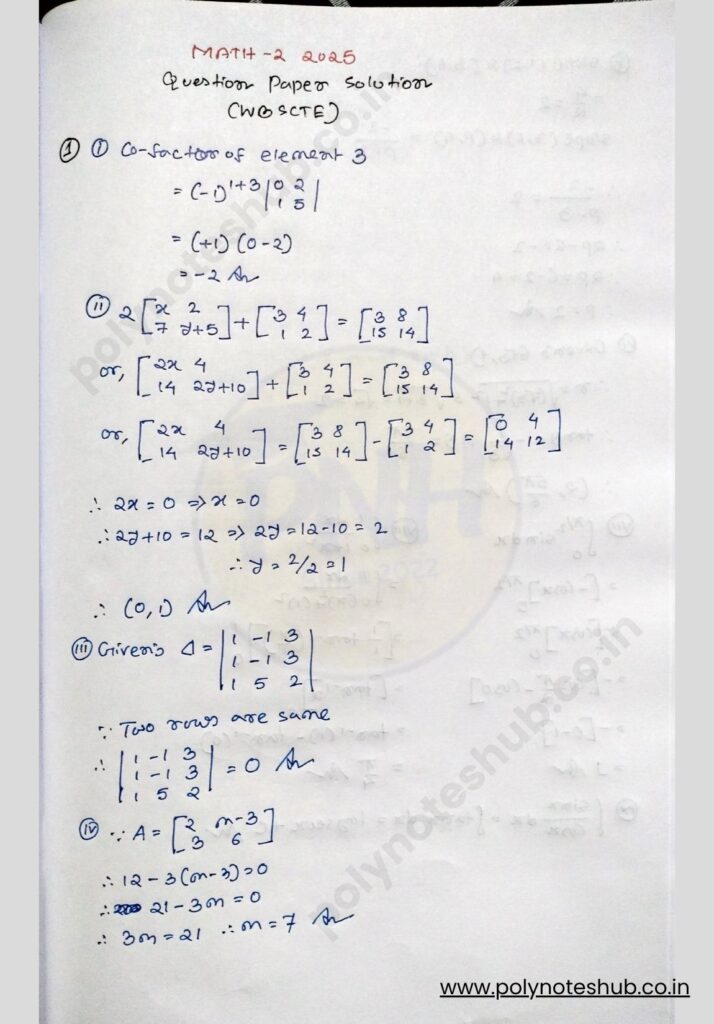 MATH-2 2025
Question Paper Solution
(WBSCTE)
① ⓘ Co-factor of element 3
= (-1)^{1+3} |0 2
1 5|
= (+1) (0-2)
= -2 Ans
ⓘⓘ 2 [x 2
7 y+5] + [3 4
1 2] = [3 8
15 14]
or, [2x 4
14 2y+10] + [3 4
1 2] = [3 8
15 14]
or, [2x 4
14 2y+10] = [3 8
15 14] - [3 4
1 2] = [0 4
14 12]
∴ 2x = 0 ⇒ x = 0
∴ 2y+10 = 12 ⇒ 2y = 12-10 = 2
∴ y = 2/2 = 1
∴ (0,1) Ans
(iii) Given's Δ = |1 -1 3
1 -1 3
1 5 2|
∵ Two rows are same
∴ |1 -1 3
1 -1 3
1 5 2| = 0 Ans
(iv) ∵ A = [2 m-3
3 6]
∴ 12 - 3(m-3) = 0
∴ 21 - 3m = 0
∴ 3m = 21 ∴ m = 7 Ans
polynoteshub.co.in
PNH
2022
polynoteshub.co.in
www.polynoteshub.co.in